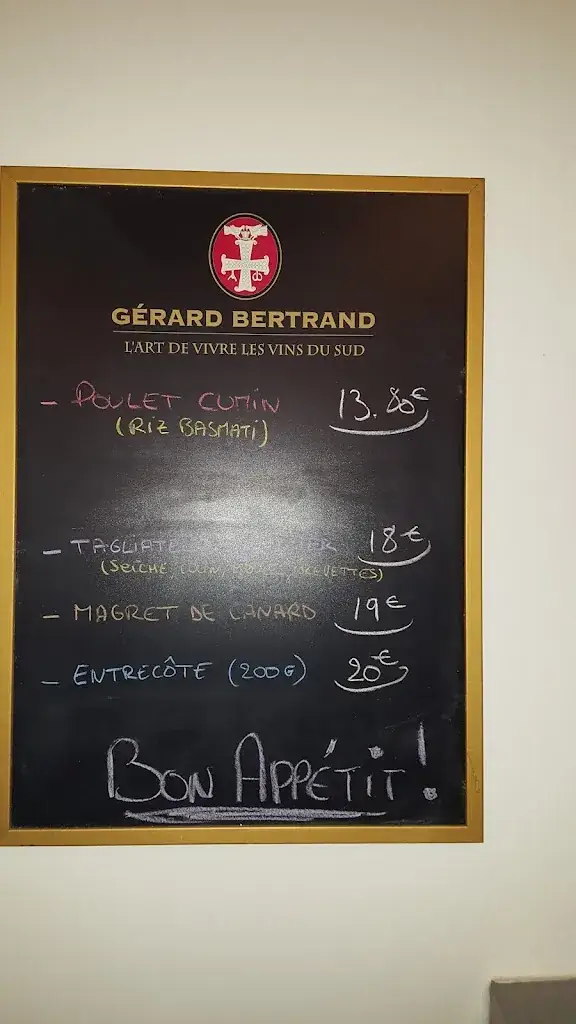 GÉRARD BERTRAND
L'ART DE VIVRE LES VINS DU SUD
- POULET CUMIN 13.80€
(RIZ BASMATI)
- 18€
(SEICHE,
- MAGRET DE CANARD 19€
- ENTRECÔTE (200G) 20€
BON APPÉTIT !